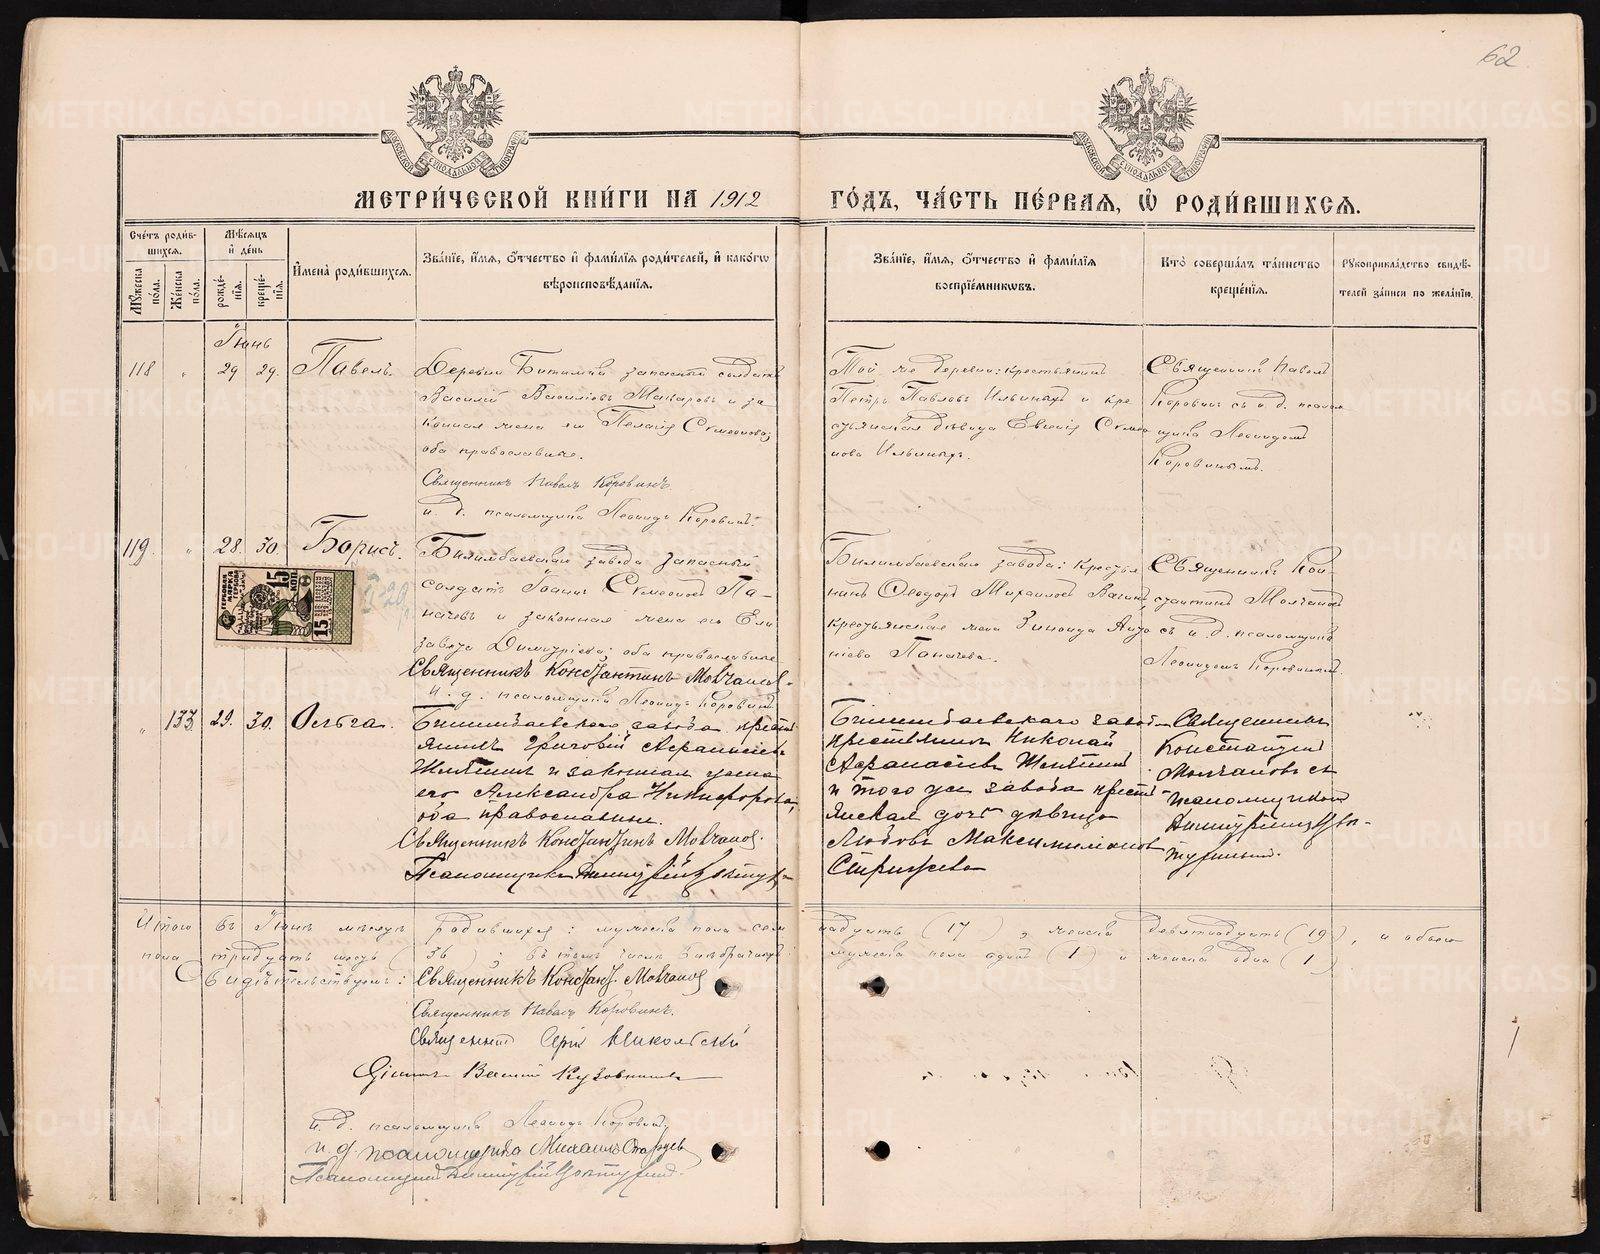 62
МЕТРИ́ЧЕСКОЙ КНИ́ГИ НА 1912 ГО́ДЪ, ЧА́СТЬ ПЕ́РВАЯ, Ѡ҆ РОДИ́ВШИХСЯ.
Сче́тъ роди́вшихся.
Мꙋ́жеска по́ла.
Же́нска по́ла.
Мѣ́сяцъ и҆ де́нь
рожде́нїя.
креще́нїя.
И҆мена̀ роди́вшихся.
Зва́нїе, и҆́мя, ѻ҆́тчество и҆ фами́лїя роди́телей, и҆ како́гѡ вѣроисповѣ́данїя.
Зва́нїе, и҆́мя, ѻ҆́тчество и҆ фами́лїя воспрїе́мникѡвъ.
Кто̀ соверша́лъ та́инство креще́нїя.
Рꙋкоприкла́дство свидѣ́телей за́писи по жела́нїю.
Іюнь
118 " 29 29. Павелъ.
Деревни Битимки запасный солдатъ
Василій Васильевъ Макаровъ и за-
конная жена его Пелагія Симеонова;
оба православные.
Священникъ Павелъ Коровинъ.
и. д. псаломщика Леонидъ Коровинъ.
Той же деревни: крестьянинъ
Петръ Павловъ Ильиныхъ и кре
стьянская дѣвица Евгенія Симео
нова Ильиныхъ.
Священникъ Павелъ
Коровинъ съ и. д. псалом
щика Леонидомъ
Коровинымъ.
119. " 28. 30. Борисъ.
Билимбаевскаго завода запасный
солдатъ Іоаннъ Симеоновъ Па-
начевъ и законная жена его Ели
завета Димитріева; оба православные
Священникъ Константинъ Молчановъ.
И. д. псаломщика Леонидъ Коровинъ
Билимбаевскаго завода: крестья
нинъ Ѳеодоръ Михаиловъ
крестьянская жена Зиновія
Паначева.
Священникъ Кон
стантинъ Молчановъ
съ и. д. псаломщика
Леонидомъ Коровинымъ
15 КОП.
ГЕРБОВАЯ МАРКА
" 133. 29. 30. Ольга.
Билимбаевскаго завода крестья
янинъ Григорій Аѳанасіевъ
Желѣзинъ и законная жена
его Александра Никифорова,
оба православные.
Священникъ Константинъ Молчановъ.
Псаломщикъ Димитрій
Билимбаевскаго завода
крестьянинъ Николай
Аѳанасіевъ
и того же завода кресть-
янская дочь дѣвица
Любовь Максимиліанова
Стрижева
Священникъ
Константинъ
Молчановъ съ
псаломщикомъ
Димитріемъ
Итого въ Іюнѣ мѣсяцѣ родившихся: мужеска пола сем
надцать (17), женска девятнадцать (19), а обоего
пола тридцать шесть (36): въ томъ числѣ
мужеска пола одинъ (1) и женска одна (1)
Свидѣтельствуемъ: Священникъ Констант. Молчановъ
Священникъ Павелъ Коровинъ.
Священникъ Сергій Никольскій
Діаконъ Василій Кузовниковъ
и. д. псаломщика Леонидъ Коровинъ
и. д. псаломщика Михаилъ
Псаломщикъ Димитрій